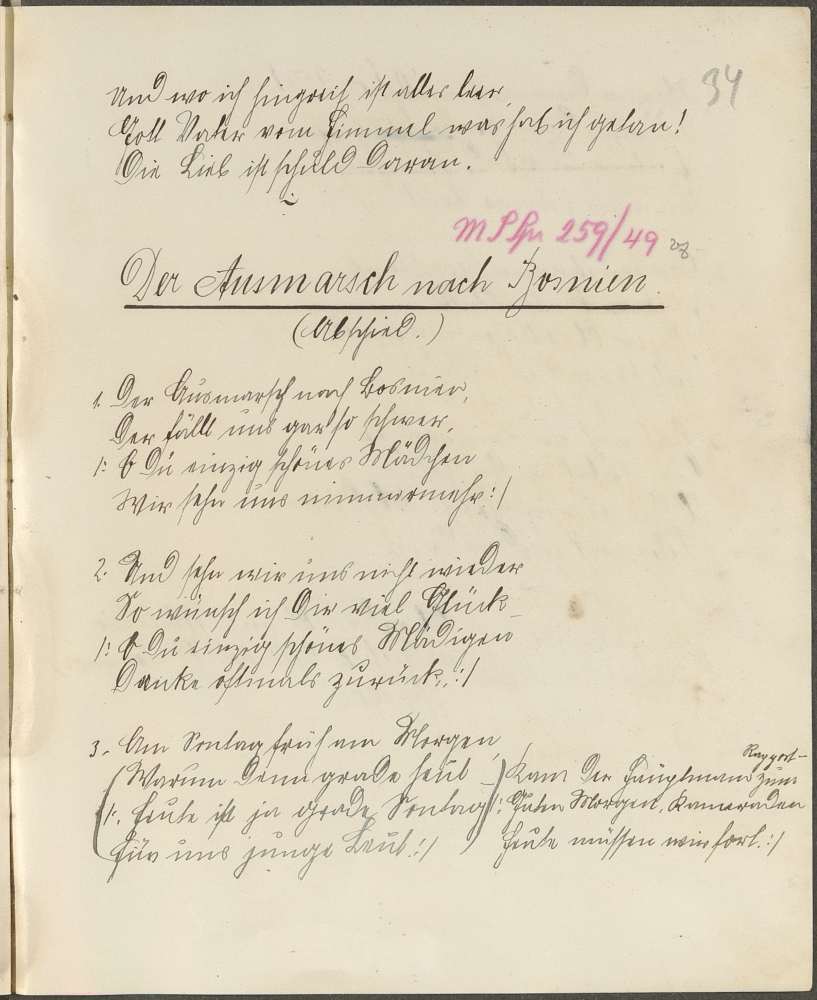 34
Und wo ich hingreif ist alles leer,
Gott Vater vom Himmel was hab ich getan!
Die Lieb ist schuld daran.
259/49
Der Ausmarsch nach Bosnien.
(Abschied.)
1. Der Ausmarsch nach Bosnien,
Der fällt uns gar so schwer,
/: O Du einzig schönes Mädchen
Wir sehn uns nimmermehr :/
2. Und sehn wir uns nicht wieder
So wünsch ich Dir viel Glück
/: O Du einzig schönes Mädigen
Danke oftmals zurück, :/
3. Am Sontag früh am Morgen,
(Warum denn grade heut
/: Heute ist ja grade Sontag
Für uns junge Leut :/ )
Kam der Hauptmann zum Rapport
/: Guten Morgen, Kameraden
Heute müssen wir fort. :/